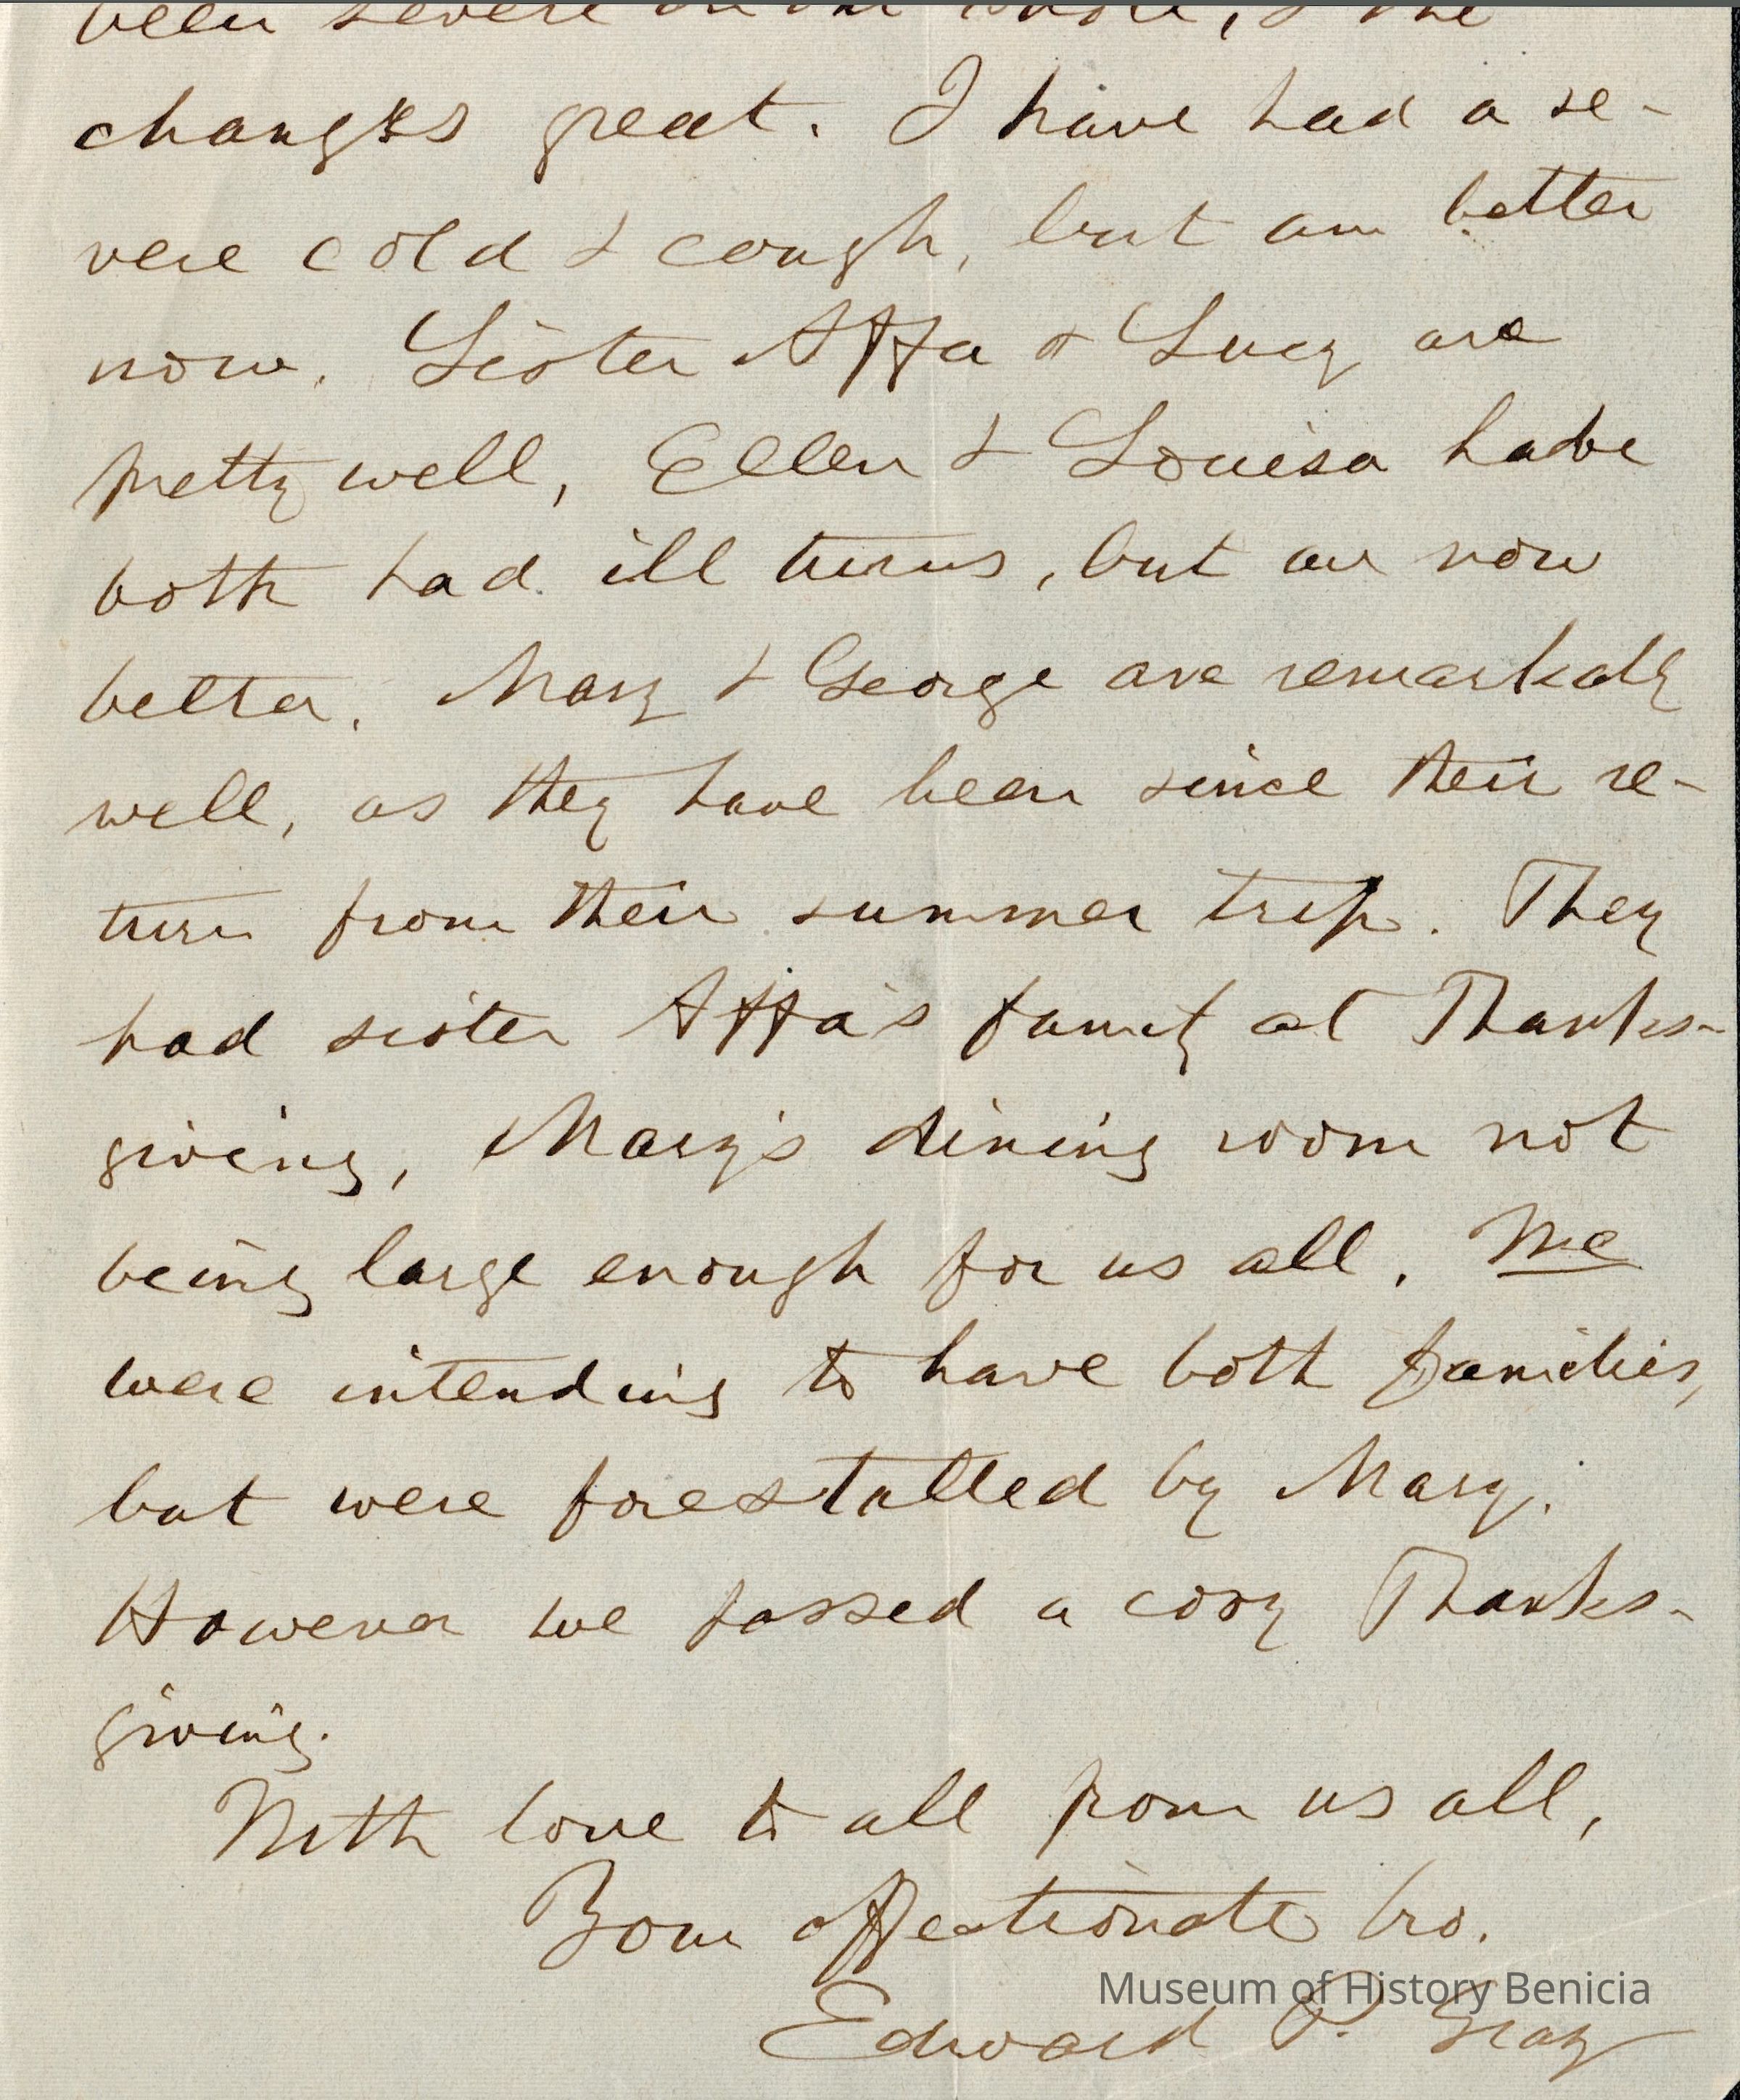 been severe on the whole, & the
changes great. I have had a se-
vere cold & cough, but am better
now. Sister Affa & Lucy are
pretty well, Ellen & Louisa have
both had ill turns, but are now
better. Mary & George are remarkably
well, as they have been since their re-
turn from their summer trip. They
had sister Affa's family at Thanks-
giving, Mary's dining room not
being large enough for us all. We
were intending to have both families,
but were forestalled by Mary.
However we passed a cosy Thanks-
giving.
With love to all from us all,
Your affectionate bro.
Museum of History Benicia
Edward P. Gray